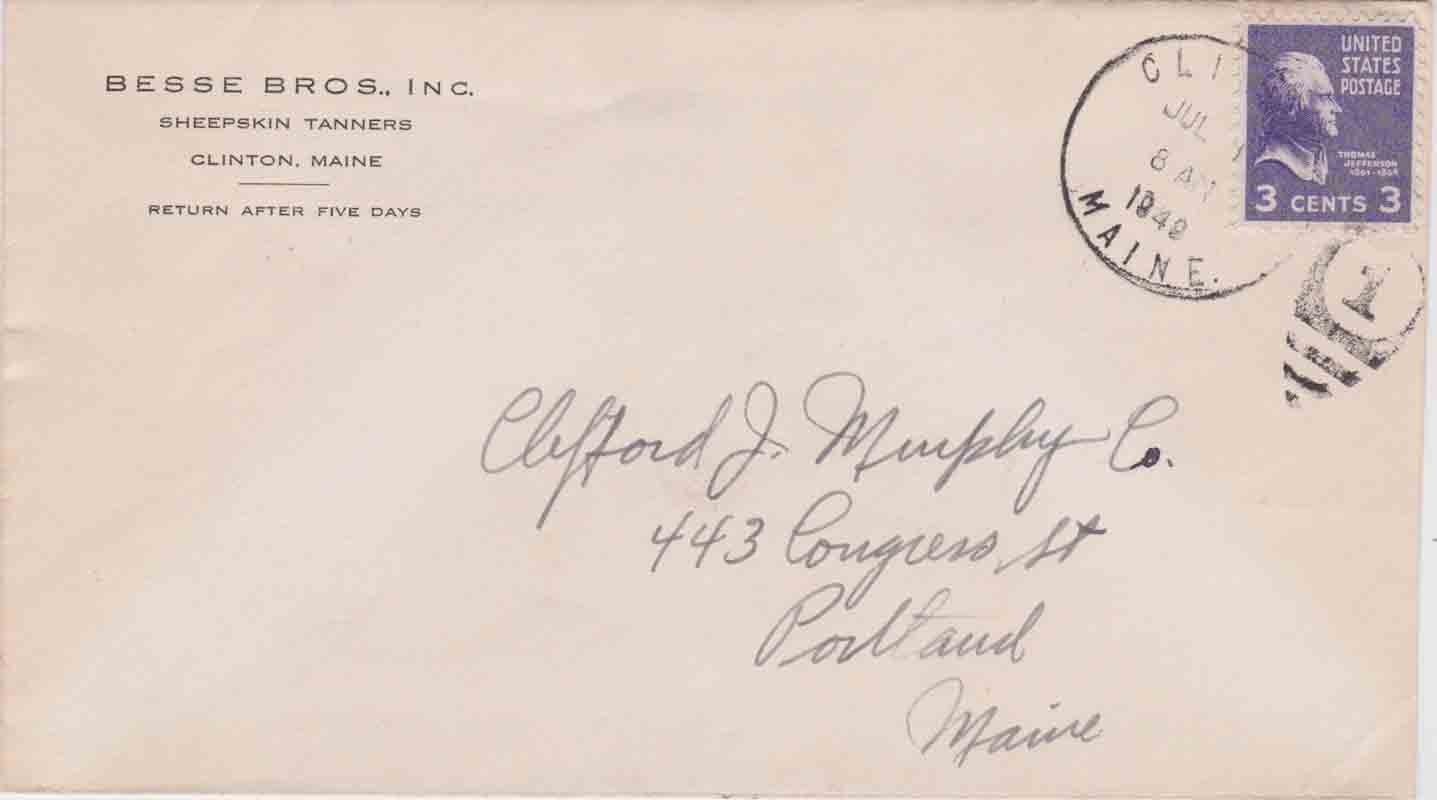 BESSE BROS., INC.
SHEEPSKIN TANNERS
CLINTON, MAINE
RETURN AFTER FIVE DAYS
CLI
JUL
8 AM
1949
MAINE.
UNITED
STATES
POSTAGE
THOMAS
JEFFERSON
1801-1809
3 CENTS 3
1
Clifford J. Murphy Co.
443 Congress St
Portland
Maine